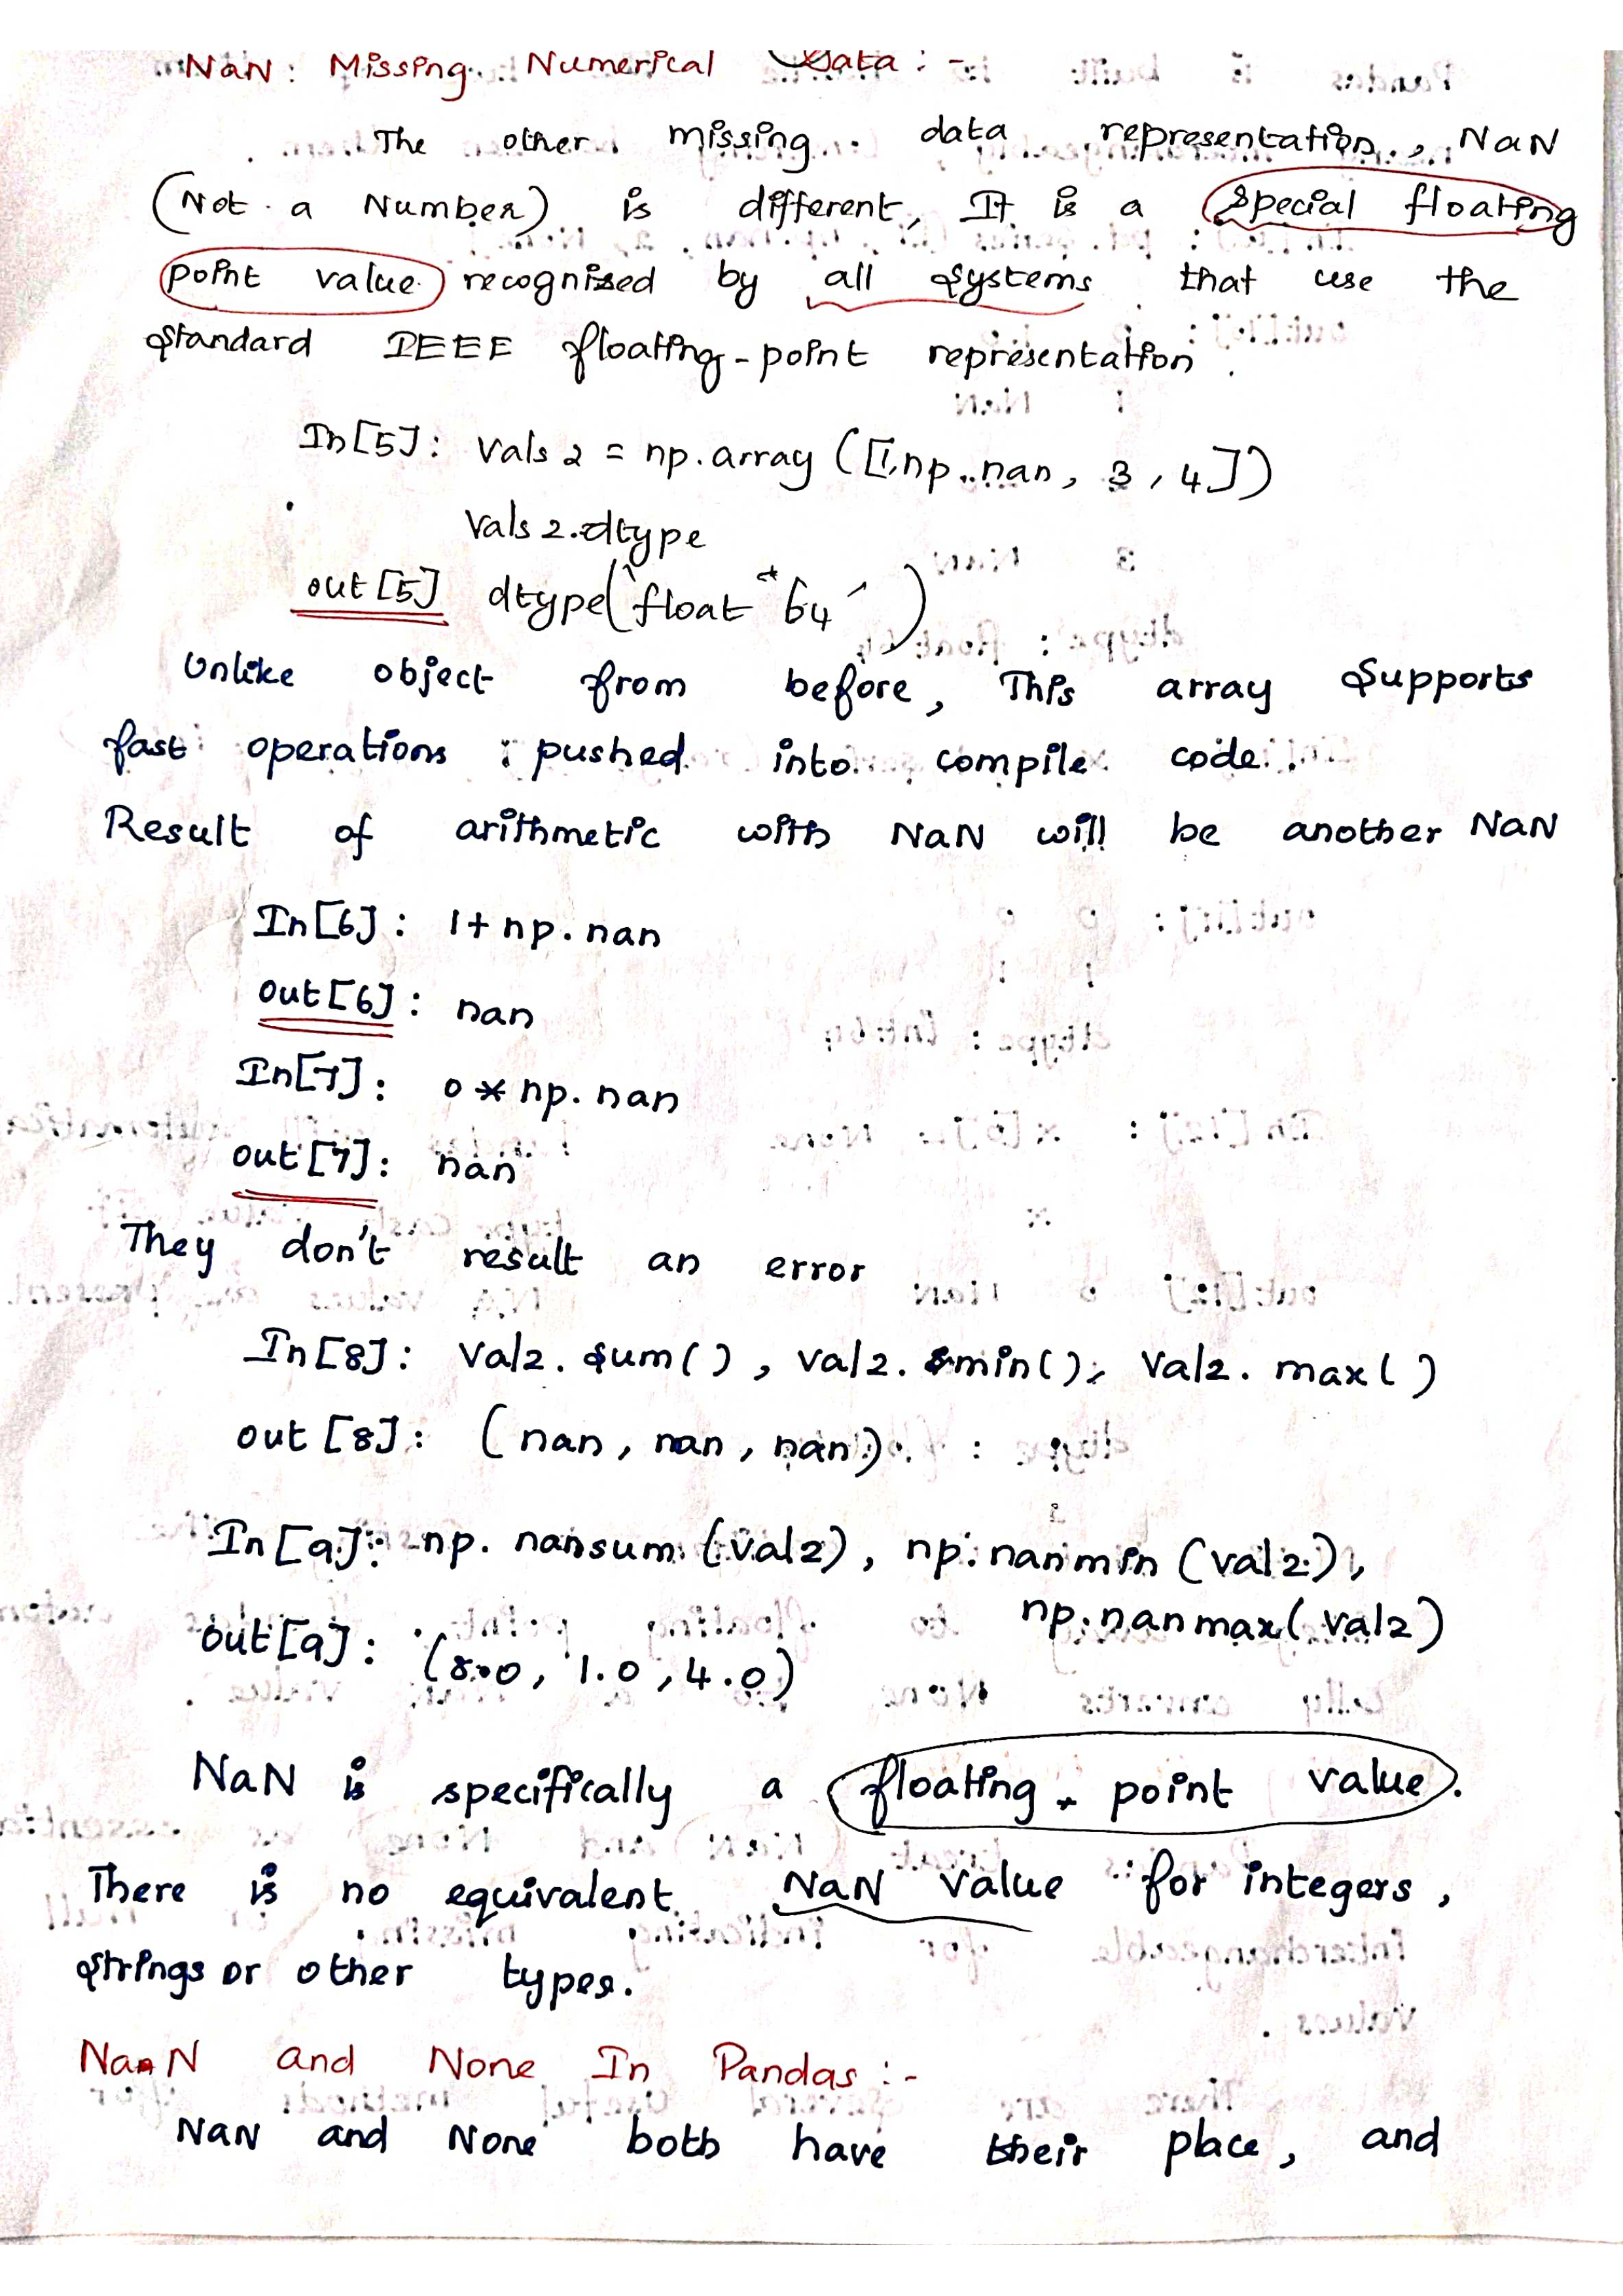 NaN: Missing Numerical Data :-
The other missing data representation, NaN
(Not a Number) is different, It is a special floating
point value recognised by all systems that use the
standard IEEE floating-point representation.
In[5]: Vals 2 = np.array ([1,np.nan, 3, 4])
Vals 2.dtype
out [5] dtype('float 64')
Unlike object from before, This array supports
fast operations ; pushed into compile code.
Result of arithmetic with NaN will be another NaN
In[6]: 1+ np.nan
out[6]: nan
In[7]: 0 * np.nan
out[7]: nan
They don't result an error
In[8]: Val2. sum(), val2. min(), Val2. max()
out [8]: (nan, nan, nan)
In[9]: np. nansum (val2), np.nanmin (val2),
np.nanmax(val2)
out[9]: (8.0, 1.0, 4.0)
NaN is specifically a floating-point value.
There is no equivalent NaN value for integers,
strings or other types.
NaN and None In Pandas :-
NaN and None both have their place, and